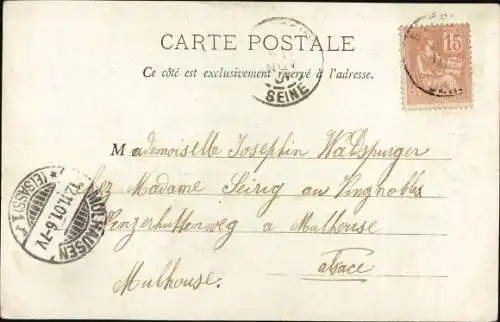 CARTE POSTALE
Ce côté est exclusivement réservé à l'adresse.
15
SEINE
Mademoiselle Josephin Walspurger
chez Madame Seirig au Vingnoble
Panzerhuttenweg a Mulhouse
alsace
Mulhouse.
MÜLHAUSEN
12.11.01.6-7V
* (ELSASS) 1 r